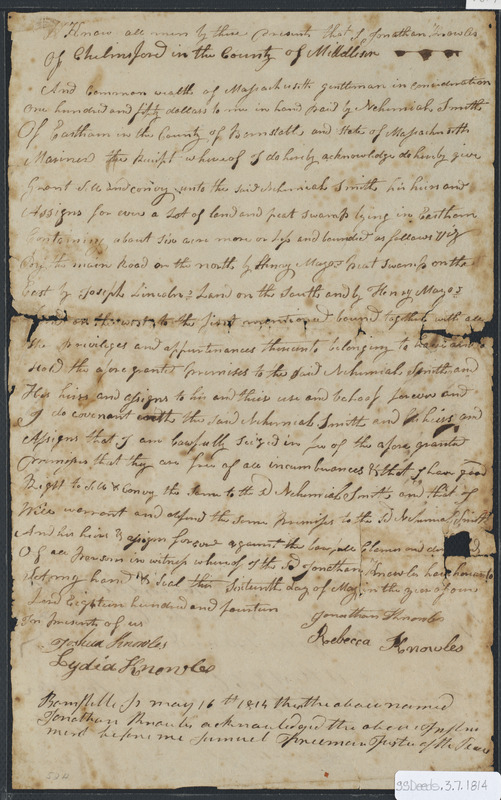 Know all men by these presents that I Jonathan Knowles
Of Chelmsford in the County of Middlesex
And Common wealth of Massachusetts gentleman in consideration
One hundred and fifty dollars to me in hand paid by Nehemiah Smith
Of Eastham in the County of Barnstable and State of Massachusetts
Mariner the receipt whereof I do hereby acknowledge do hereby give
Grant Sell and convey unto the said Nehemiah Smith his heirs and
Assigns for ever a Lot of land and peat swamp lying in Eastham
Containing about Six acre more or less and bounded as follows Viz
the main Road on the north by Henry Mayos peat Swamp on the
East by Joseph Lincolns Land on the South and by Henry Mayos
on the west to the first mentioned bound together with all
the privileges and appurtenances thereunto belonging to have and to
hold the afore granted premises to the said Nehemiah Smith and
His heirs and assigns to his and their use and behoof forever and
I do covenant with the said Nehemiah Smith and his heirs and
Assigns that I am lawfully Seized in fee of the afore granted
premises that they are free of all incumbrances & that I have good
Right to Sell & Convey the same to the sd Nehemiah Smith and that I
Will warrant and defend the same premises to the sd Nehemiah Smith
And his heirs & assigns forever against the lawfull Claims and
Of all Persons in witness whereof I the sd Jonathan Knowles have hereunto
Set my hand & Seal this Sixteenth Day of May in the year of our
Lord Eighteen hundred and fourteen
In presents of us
Jonathan Knowles
Joshua Knowles
Rebecca Knowles
Lydia Knowles
Barnstable Ss may 16th 1814 then the above named
Jonathan Knowles acknowledged the above Instru
ment before me Samuel Freeman Justice of the Peace
SSDeeds.3.7.1814